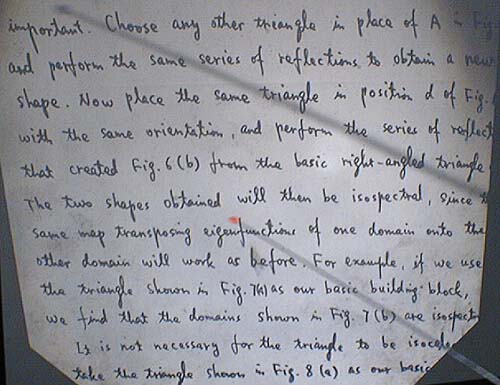 important. Choose any other triangle in place of A in Fig
and perform the same series of reflections to obtain a new
shape. Now place the same triangle in position d of Fig.
with the same orientation, and perform the series of reflect
that created Fig. 6(b) from the basic right-angled triangle
The two shapes obtained will then be isospectral, since t
same map transposing eigenfunctions of one domain onto the
other domain will work as before. For example, if we use
the triangle shown in Fig. 7(a) as our basic building block,
we find that the domains shown in Fig. 7(b) are isospect
It is not necessary for the triangle to be isocele
take the triangle shown in Fig. 8(a) as our basic